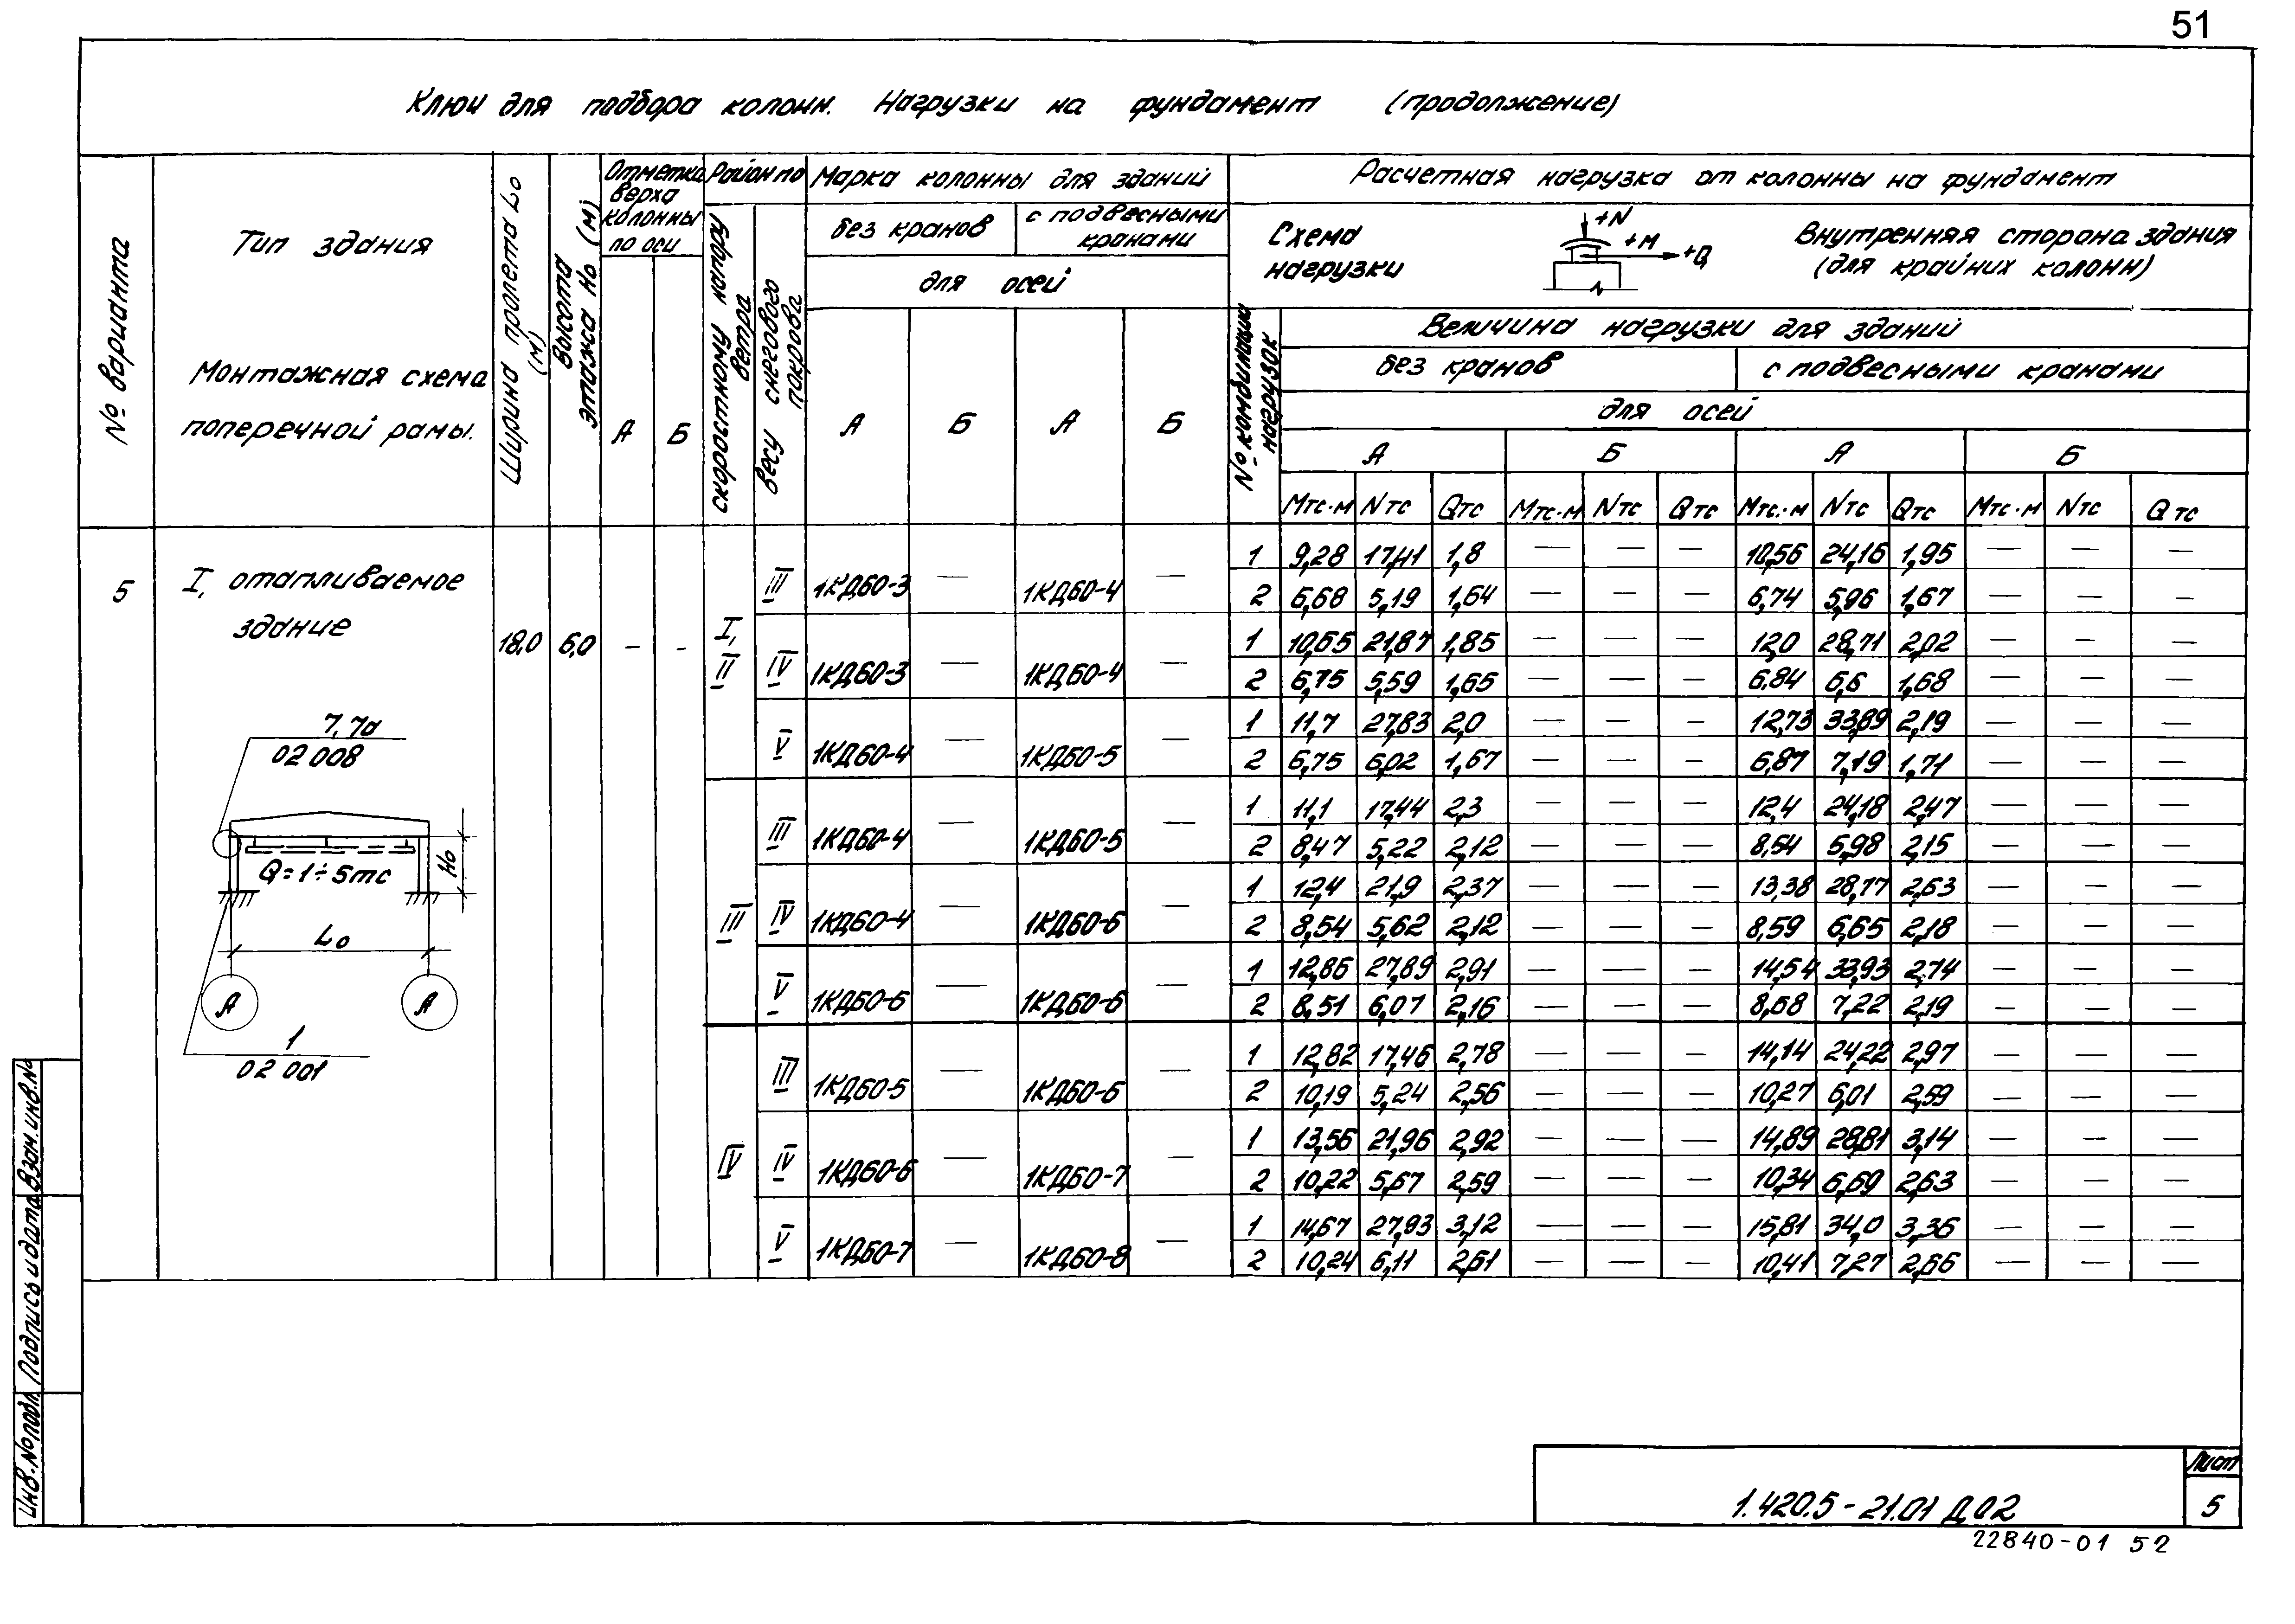 51
Ключи для подбора колонн. Нагрузки на фундамент (продолжение)
№ варианта
Тип здания
Монтажная схема
поперечной рамы.
Ширина пролета Lо (м)
Высота этажа Hо (м)
Отметка
верха
колонны
по оси
А Б
Район по
скоростному напору ветра
весу снегового покрова
Марка колонны для зданий
без кранов
с подвесными
кранами
для осей
А Б А Б
Расчетная нагрузка от колонны на фундамент
Схема
нагрузки
+N
+M
+Q
Внутренняя сторона здания
(для крайних колонн)
№ комбинации нагрузок
Величина нагрузки для зданий
без кранов с подвесными кранами
для осей
А Б А Б
Мтс·м Nтс Qтс Мтс·м Nтс Qтс Мтс·м Nтс Qтс Мтс·м Nтс Qтс
5
I, отапливаемое
здание
18,0 6,0 – –
7, 7а
02 008
Q=1÷5тс
Hо
Lо
А А
1
02 001
I, II
III 1КД60-3 — 1КД60-4 —
1 9,28 17,41 1,8 — — — 10,56 24,16 1,95 — — —
2 6,68 5,19 1,64 — — — 6,74 5,96 1,67 — — —
IV 1КД60-3 — 1КД60-4 —
1 10,65 21,87 1,85 — — — 12,0 28,71 2,02 — — —
2 6,75 5,59 1,65 — — — 6,84 6,6 1,68 — — —
V 1КД60-4 — 1КД60-5 —
1 11,7 27,83 2,0 — — — 12,73 33,89 2,19 — — —
2 6,75 6,02 1,67 — — — 6,87 7,19 1,71 — — —
III
III 1КД60-4 — 1КД60-5 —
1 11,1 17,44 2,3 — — — 12,4 24,18 2,47 — — —
2 8,47 5,22 2,12 — — — 8,54 5,98 2,15 — — —
IV 1КД60-4 — 1КД60-6 —
1 12,4 21,9 2,37 — — — 13,38 28,77 2,63 — — —
2 8,54 5,62 2,12 — — — 8,59 6,65 2,18 — — —
V 1КД60-6 — 1КД60-6 —
1 12,86 27,89 2,91 — — — 14,54 33,93 2,74 — — —
2 8,51 6,07 2,16 — — — 8,68 7,22 2,19 — — —
IV
III 1КД60-5 — 1КД60-6 —
1 12,82 17,46 2,78 — — — 14,14 24,22 2,97 — — —
2 10,19 5,24 2,56 — — — 10,27 6,01 2,59 — — —
IV 1КД60-6 — 1КД60-7 —
1 13,56 21,96 2,92 — — — 14,89 28,81 3,14 — — —
2 10,22 5,67 2,59 — — — 10,34 6,69 2,63 — — —
V 1КД60-7 — 1КД60-8 —
1 14,67 27,93 3,12 — — — 15,81 34,0 3,36 — — —
2 10,24 6,11 2,61 — — — 10,41 7,27 2,66 — — —
Инв.№подл. Подпись и дата Взам.инв.№
1.420.5-21.01 Д02
Лист
5
22840-01 52